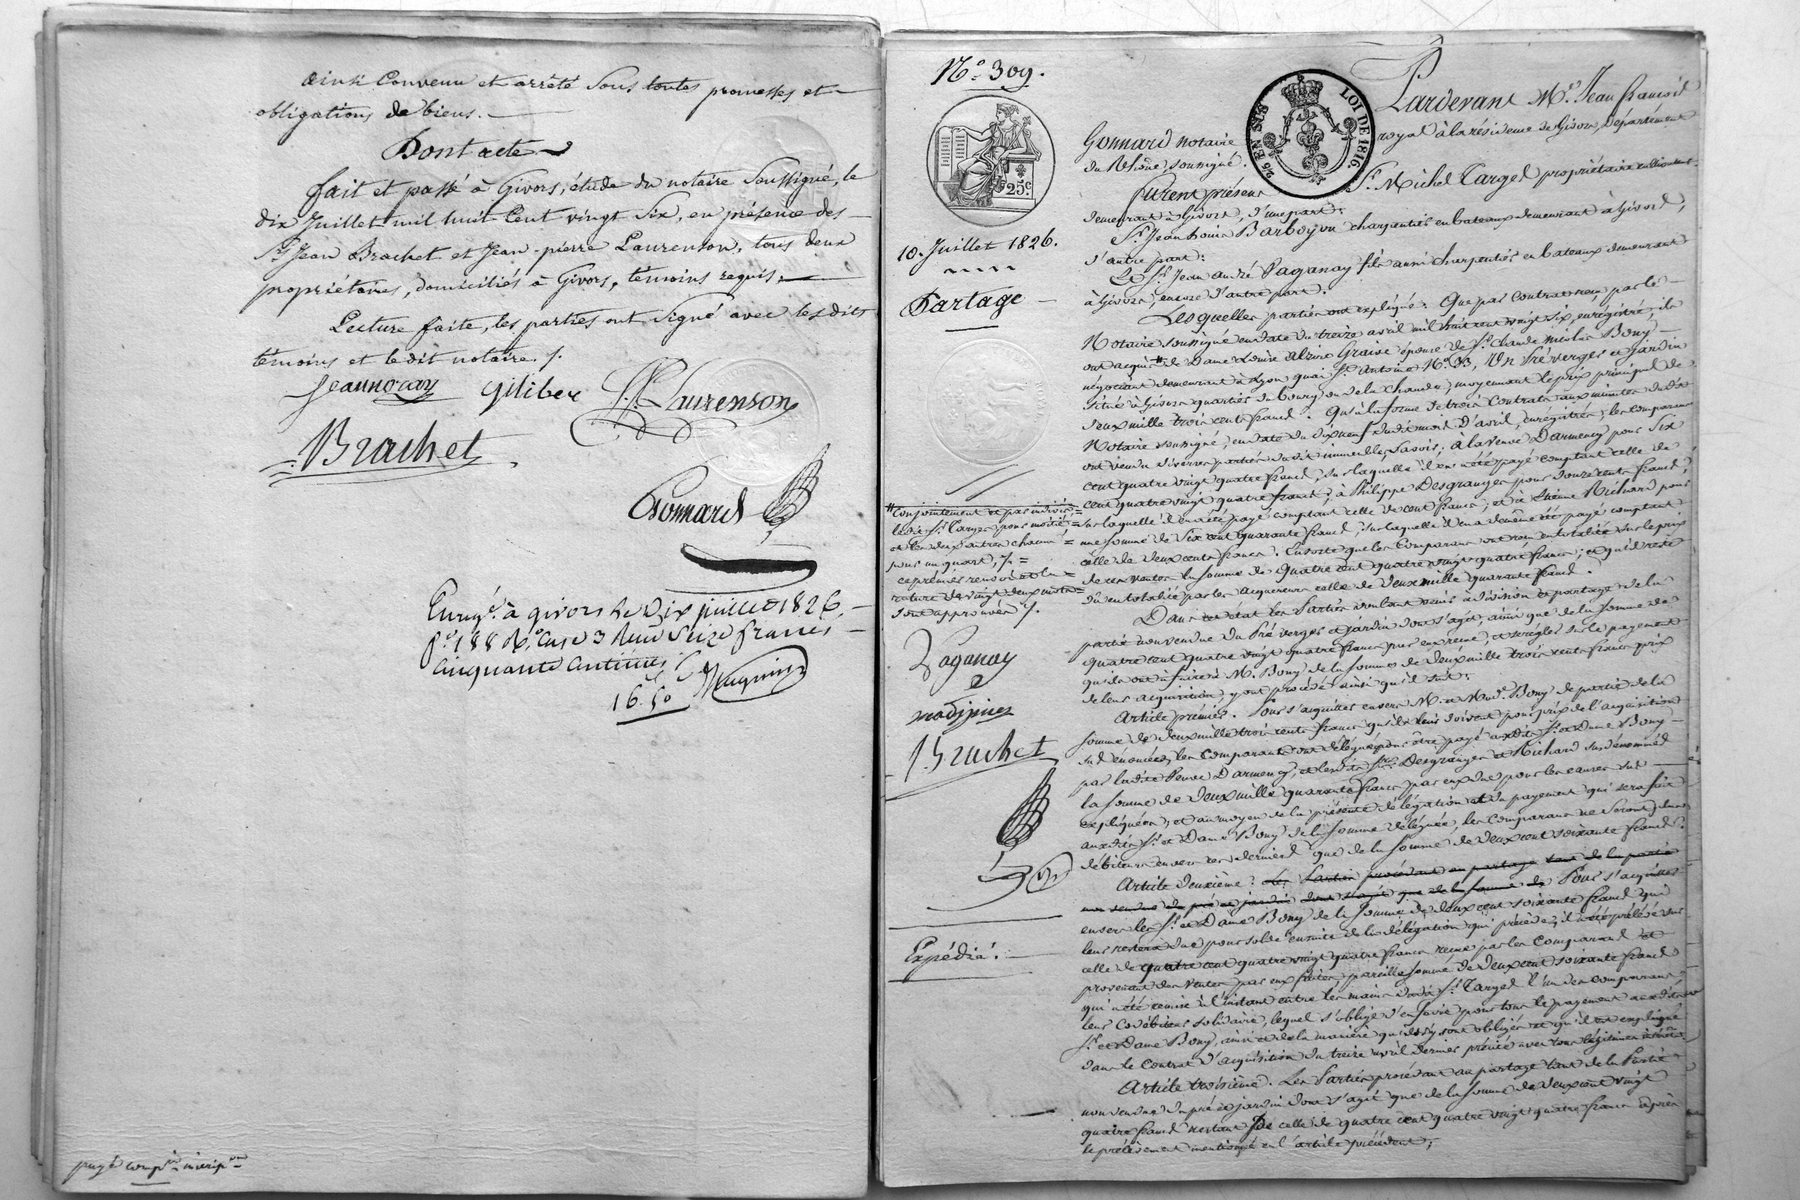 ainsi Convenu et arrêté Sous toutes promesses et
obligations de biens.
Dont acte
fait et passé à Givors, étude du notaire Soussigné, le
dix Juillet mil huit Cent vingt Six, en présence des
Srs Jean Brachet et Jean-pierre Laurenson, tous deux
propriétaires, domiciliés à Givors, témoins requis.
Lecture faite, les parties ont Signé avec les dits
témoins et le dit notaire. /.
giliber J.P. Laurenson
Brachet
Gonnard
Enregé à givors le Dix juillet 1826
fo 188 Ro Case 3 Reçu Seize francs
Cinquante Centimes
16.50
No. 309.
25c
10. Juillet 1826.
Partage
Conjointement et par indivis,
le dit Sr Targe pour moitié
et les deux autres chacun
pour un quart, /.
ce premier renvoi et la
rature de vingt deux mots
sont approuvés /.
Paganay
Brachet
Expédié.
25 EN SUS LOI DE 1816.
Pardevant Me Jean françois
Gonnard notaire royal à la résidence de Givors, Département
du Rhône, soussigné.
furent présens Sr Michel Targe propriétaire
demeurant à Givors, d'une part;
Sr Jean Louis Barboyon charpentier en bateaux demeurant à Givors,
d'autre part;
Et Sr Jean André Paganay fils aussi charpentier en bateaux demeurant
à Givors, encore d'autre part.
Lesquelles parties ont expliqué: Que par Contrat reçu par le
Notaire soussigné en date du treize avril mil huit cent vingt six, enregistré, ils
ont acquis de Dame Louise épouse de Sr Claude nicolas Bony
négociant demeurant à Lyon quai St Antoine No 33, Un Pré verger et jardin
situé à Givors quartier du bourg ou de la chaude, moyennant le prix principal de
deux mille trois cents francs. Qu'à la forme de trois Contrats aux minutes dudit
Notaire soussigné, en date du dix neuf dudit mois d'avril, enregistrés, les comparans
ont vendu diverses parties dudit immeuble, Savoir, à la veuve Darmency pour Six
cent quatre vingt quatre francs, sur laquelle il en a été payé comptant celle de
cent quatre vingt quatre francs; à Philippe Desgranges pour douze cents francs,
sur laquelle il en a été payé comptant celle de cent francs; et à Etienne Richard pour
une somme de Six cent quarante francs, sur laquelle il en a de même été payé comptant
celle de deux cents francs. Ensorte que les Comparans ont reçu en totalité sur le prix
de ces ventes la somme de Quatre cent quatre vingt quatre francs; et qu'il reste
dû en totalité par les acquéreurs celle de Deux mille quarante francs.
Dans cet état les Parties voulant venir à division et partage de la
partie non vendue du Pré verger et jardin dont s'agit, ainsi que de la somme de
quatre cent quatre vingt quatre francs par eux reçue, et se régler sur le payement
qu'ils ont à faire à M. Bony de la somme de Deux mille trois cents francs prix
de leur acquisition, y ont procédé ainsi qu'il suit:
Article premier. Pour s'acquitter envers M. et Made Bony de partie de la
somme de deux mille trois cents francs qu'ils leur doivent pour prix de l'acquisition
sus énoncée, les Comparans ont délégué pour être payé auxdits Sr et Dame Bony
par ladite Veuve Darmency, et lesdits Srs Desgranges et Richard susdénommés
la somme de deux mille quarante francs par eux due pour les causes sus
expliquées; et au moyen de la présente délégation et du payement qui sera fait
auxdits Sr et Dame Bony de la somme déléguée, les Comparans ne seront plus
débiteurs envers ces derniers que de la somme de deux cent soixante francs.
Article deuxième. Les Parties procédant au partage tant de la partie
non vendue du pré et jardin dont s'agit que de la somme de Pour s'acquitter
envers les Sr et Dame Bony de la somme de deux cent soixante francs qui
leur restera due pour solde ensuite de la délégation qui précède, il a été prélevé sur
celle de quatre cent quatre vingt quatre francs reçue par les Comparans et
provenant des ventes par eux faites, pareille somme de deux cent soixante francs
qui a été remise à l'instant entre les mains dudit Sr Targe l'un des comparans
leur codébiteur solidaire, lequel s'oblige d'en faire pour tous le payement auxdits
Sr et Dame Bony, ainsi et de la manière qu'ils s'y sont obligés et qu'il est expliqué
dans le Contrat d'acquisition du treize avril dernier précité avec tous légitimes intérêts.
Article troisième. Les Parties procédant au partage tant de la Partie
non vendue du pré et jardin dont s'agit que de la somme de deux cent vingt
quatre francs restant de celle de quatre cent quatre vingt quatre francs après
le prélèvement mentionné en l'article précédent;